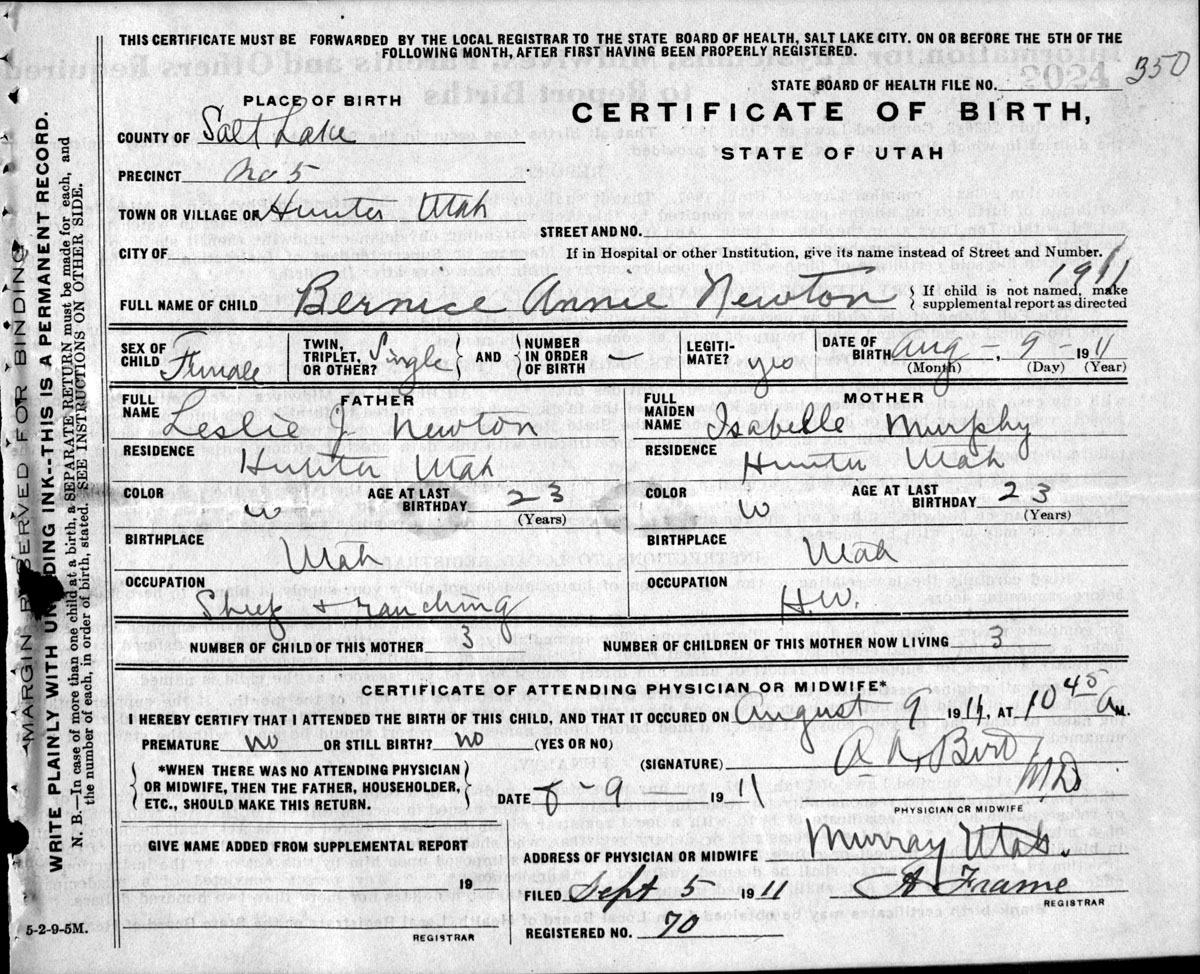 THIS CERTIFICATE MUST BE FORWARDED BY THE LOCAL REGISTRAR TO THE STATE BOARD OF HEALTH, SALT LAKE CITY. ON OR BEFORE THE 5TH OF THE
FOLLOWING MONTH, AFTER FIRST HAVING BEEN PROPERLY REGISTERED.
STATE BOARD OF HEALTH FILE NO. 350
PLACE OF BIRTH
CERTIFICATE OF BIRTH,
STATE OF UTAH
COUNTY OF Salt Lake
PRECINCT No 5
TOWN OR VILLAGE OR Hunter Utah
STREET AND NO.
CITY OF
If in Hospital or other Institution, give its name instead of Street and Number.
1911
FULL NAME OF CHILD Bernice Annie Newton
{ If child is not named, make
supplemental report as directed
SEX OF CHILD Female
TWIN, TRIPLET, OR OTHER? Single } AND { NUMBER IN ORDER OF BIRTH –
LEGITI- MATE? yes
DATE OF BIRTH Aug, 9 – 1911
(Month) (Day) (Year)
FATHER
FULL NAME Leslie J. Newton
RESIDENCE Hunter Utah
COLOR W AGE AT LAST BIRTHDAY 23
(Years)
BIRTHPLACE Utah
OCCUPATION Sheep + ranching
MOTHER
FULL MAIDEN NAME Isabelle Murphy
RESIDENCE Hunter Utah
COLOR W AGE AT LAST BIRTHDAY 23
(Years)
BIRTHPLACE Utah
OCCUPATION H.W.
NUMBER OF CHILD OF THIS MOTHER 3 NUMBER OF CHILDREN OF THIS MOTHER NOW LIVING 3
CERTIFICATE OF ATTENDING PHYSICIAN OR MIDWIFE*
I HEREBY CERTIFY THAT I ATTENDED THE BIRTH OF THIS CHILD, AND THAT IT OCCURED ON August 9 1911, AT 10 45 A M.
PREMATURE no OR STILL BIRTH? no (YES OR NO)
(SIGNATURE) M.D.
PHYSICIAN OR MIDWIFE
{ *WHEN THERE WAS NO ATTENDING PHYSICIAN
OR MIDWIFE, THEN THE FATHER, HOUSEHOLDER,
ETC., SHOULD MAKE THIS RETURN. }
DATE 8 9 1911
GIVE NAME ADDED FROM SUPPLEMENTAL REPORT
19
REGISTRAR
ADDRESS OF PHYSICIAN OR MIDWIFE Murray Utah.
FILED Sept 5 1911 Frame
REGISTRAR
REGISTERED NO. 70
5-2-9-5M.
MARGIN RESERVED FOR BINDING
WRITE PLAINLY WITH UNFADING INK--THIS IS A PERMANENT RECORD.
N. B.—In case of more than one child at a birth, a SEPARATE RETURN must be made for each, and
the number of each, in order of birth, stated. SEE INSTRUCTIONS ON OTHER SIDE.